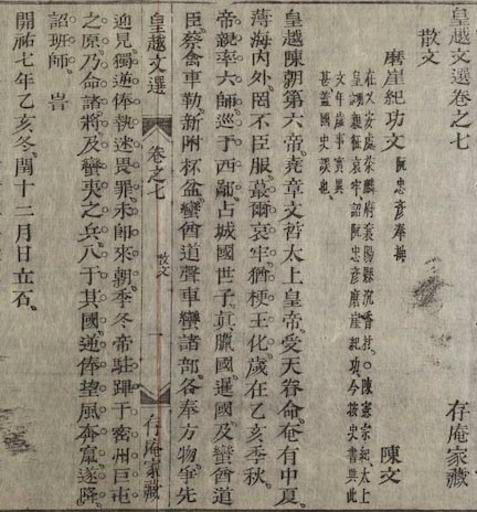 皇越文選卷之七　存庵家藏
散文
磨崖紀功文　阮忠彥奉撰　陳文
在乂安處茶麟府襄陽縣沉香村。○陳憲宗紀太上
皇親征哀牢詔阮忠彥磨崖紀功今按史書與此
文年歲事實異
甚蓋國史誤也
皇越陳朝第六帝堯章文哲太上皇帝受天眷命奄有中夏
薄海內外罔不臣服蕞爾哀牢猶梗王化歲在乙亥季秋
帝親率六師巡于西鄙占城國世子真臘國暹國及蠻酋道
臣葵禽車勒新附杯盆蠻酋道聲車蠻諸部各奉方物爭先
皇越文選　卷之七　散文　一　存庵家藏
迎見獨逆俸執迷畏罪未即來朝季冬帝駐蹕于密州巨屯
之原乃命諸將及蠻夷之兵入于其國逆俸望風奔竄遂降
詔班師旹
開祐七年乙亥冬閏十二月日立石